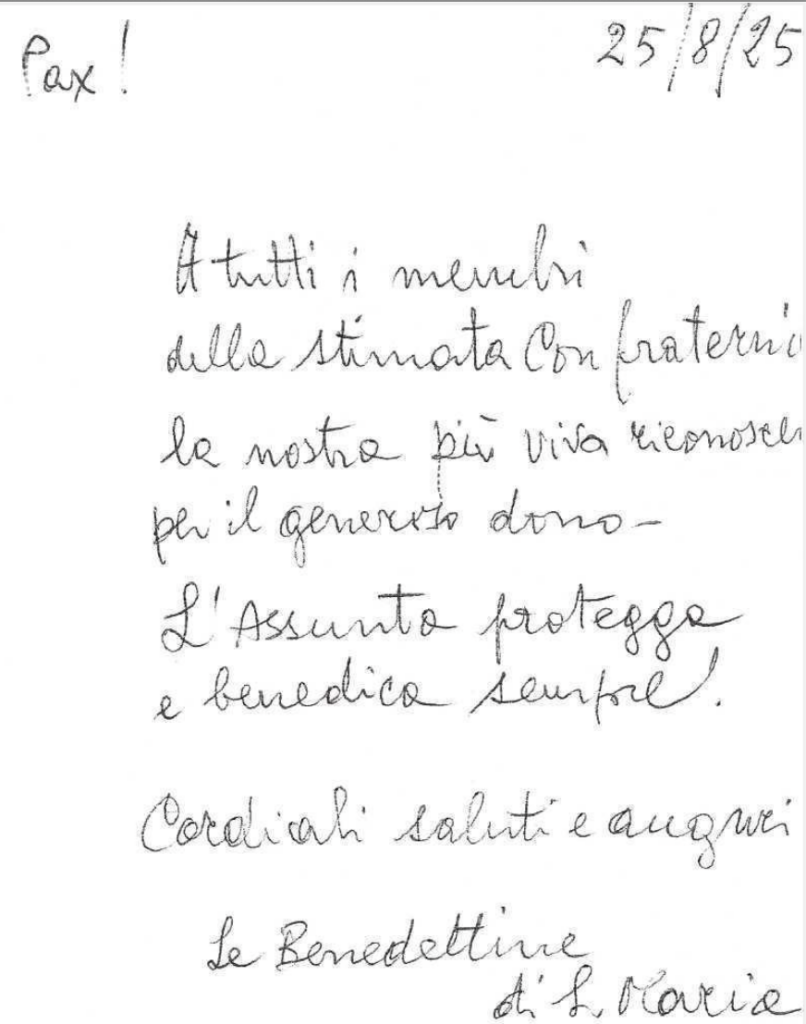 Pax! 25/8/25
A tutti i membri
della stimata Confraterni
la nostra più viva riconoscen
per il generoso dono-
L'Assunta protegga
e benedica sempre!
Cordiali saluti e auguri
Le Benedettine
di S. Maria